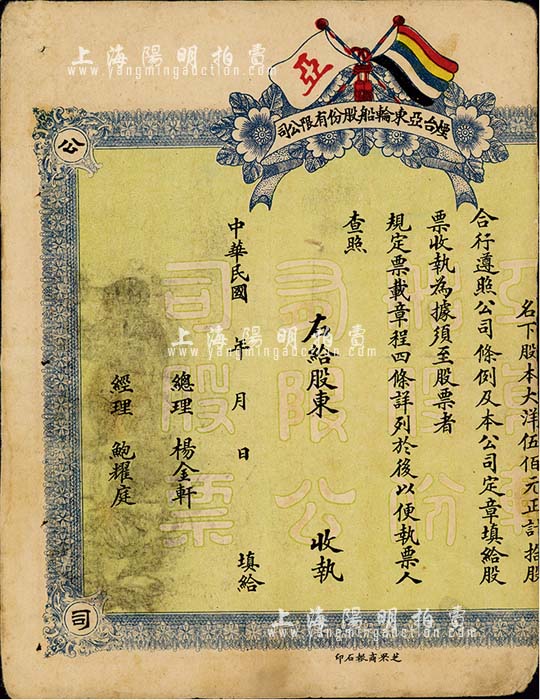 亞
煙台亞東輪船股份有限公司
公
名下股本大洋伍佰元正計拾股
合行遵照公司條例及本公司定章填給股
票收執為據須至股票者
規定票載章程四條詳列於後以便執票人
查照
右給股東 收執
中華民國 年 月 日 填給
總理 楊金軒
經理 鮑耀庭
司
芝罘商報石印
上海陽明拍賣
www.yangmingauction.com
上海陽明拍賣
www.yangmingauction.com
上海陽明拍賣
www.yangmingauction.com